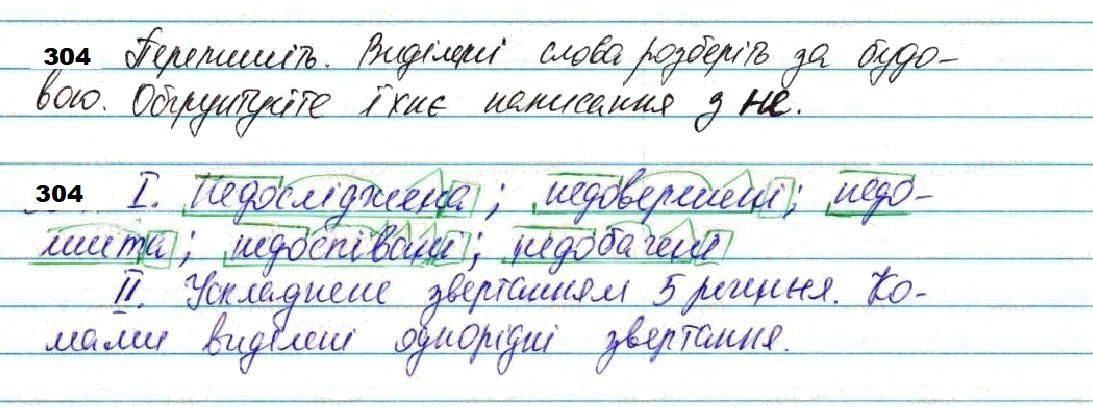 304 Перепишіть. Виділені слова розберіть за будо-
вою. Обґрунтуйте їхнє написання з не.
304 I. Недосліджена; недовершені; недо-
шита; недоспівані; недобачені
II. Ускладнене звертанням 5 речення. Ко-
мами виділені однорідні звертання.